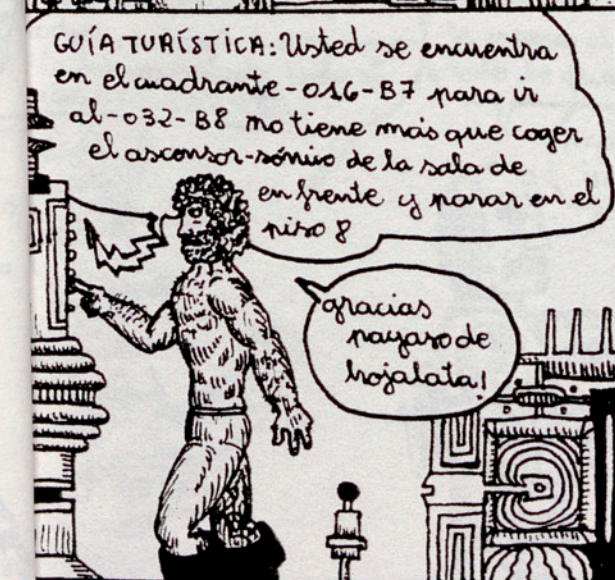 GUÍA TURÍSTICA: Usted se encuentra
en el cuadrante-016-B7 para ir
al-032-B8 no tiene más que coger
el ascensor-sónico de la sala de
enfrente y parar en el
piso 8
gracias
payaso de
hojalata!